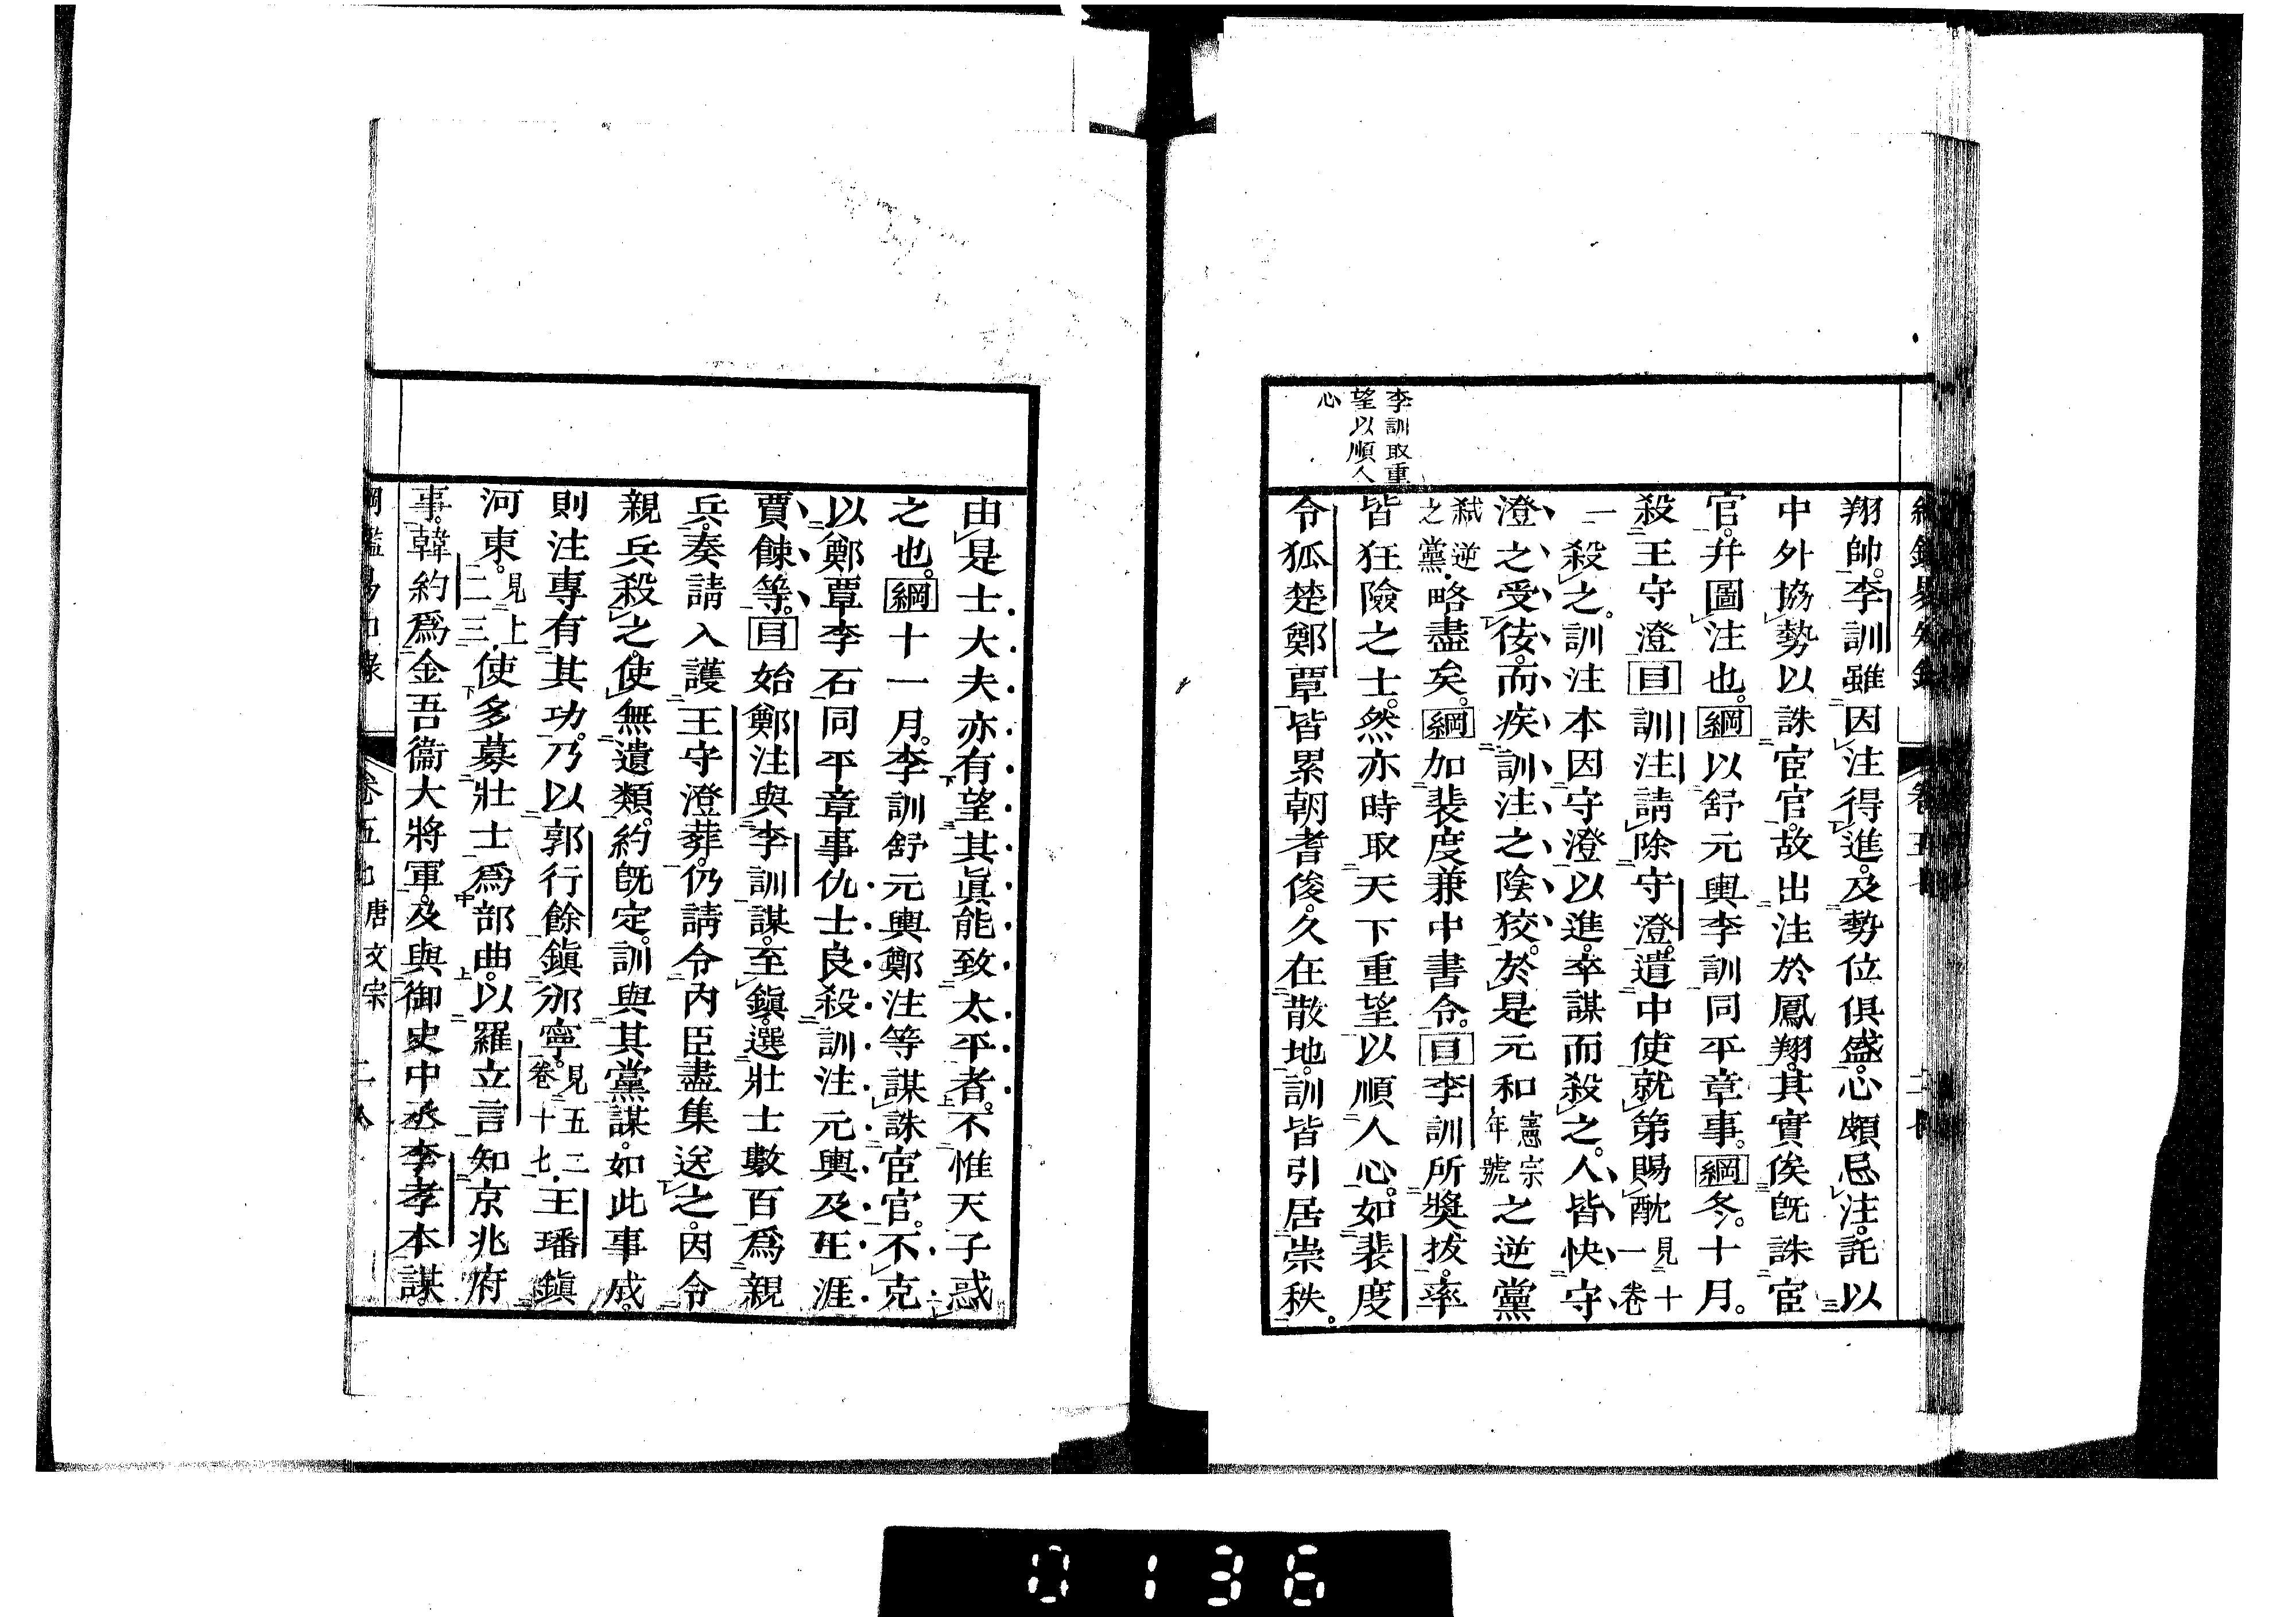 李訓取重
望以順人
心
翔帥。李訓雖因注得進。及勢位俱盛。心頗忌注。託以
中外協勢以誅宦官。故出注於鳳翔。其實俟既誅宦
官。幷圖注也。綱以舒元輿李訓同平章事。綱冬。十月。
殺王守澄目訓注請除守澄。遣中使就第賜酖見十一卷
一殺之。訓注本因守澄以進。卒謀而殺之。人皆快守
澄之受佞。而疾訓注之陰狡。於是元和憲宗年號之逆黨
弑逆之黨略盡矣。綱加裴度兼中書令。目李訓所獎拔。率
皆狂險之士。然亦時取天下重望以順人心。如裴度
令狐楚鄭覃皆累朝耆俊。久在散地。訓皆引居崇秩。
由是士大夫亦有望其眞能致太平者。不惟天子惑
之也。綱十一月。李訓舒元輿鄭注等謀誅宦官。不克
以鄭覃李石同平章事仇士良殺訓注元輿及王涯
賈餗等。目始鄭注與李訓謀。至鎭。選壯士數百爲親
兵。奏請入護王守澄葬。仍請令內臣盡集送之。因令
親兵殺之。使無遺類。約既定。訓與其黨謀。如此事成。
則注專有其功。乃以郭行餘鎭邠寧。見五二卷十七王璠鎭
河東。見上二三使多募壯士爲部曲。以羅立言知京兆府
事。韓約爲金吾衞大將軍。及與御史中丞李孝本謀。
唐文宗
0136